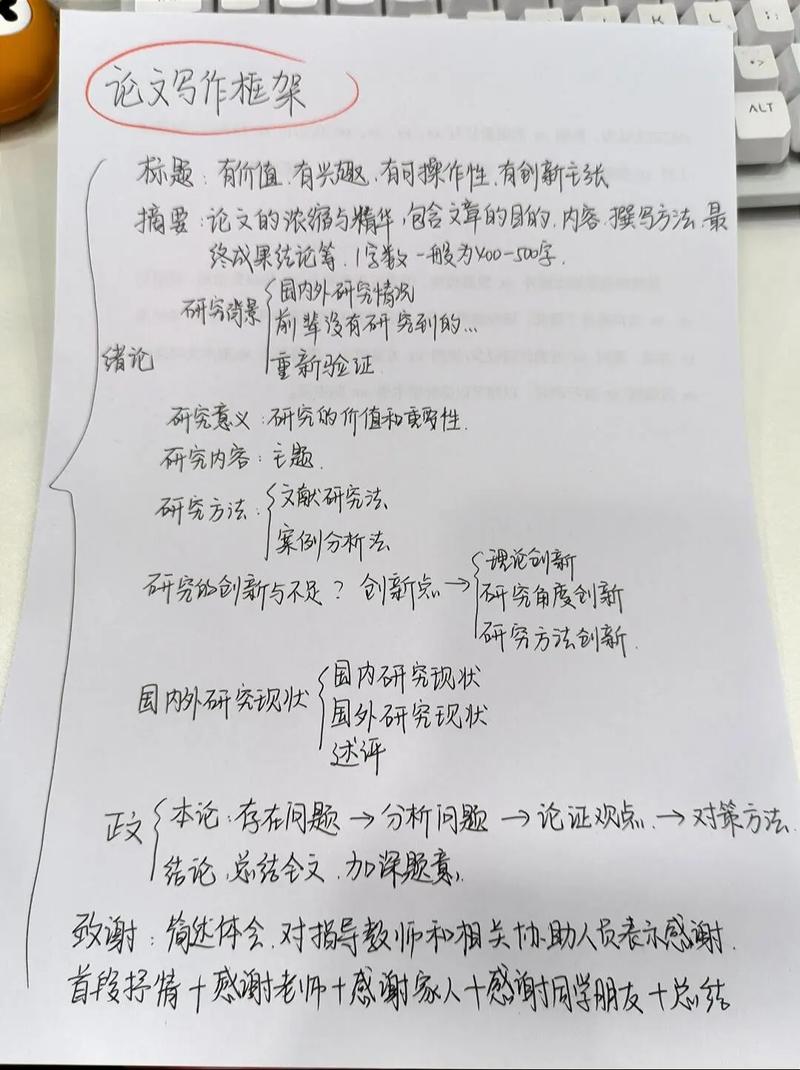 论文写作框架
标题：有价值、有兴趣、有可操作性、有创新主张
摘要：论文的浓缩与精华，包含文章的目的、内容、撰写方法、最
终成果结论等、字数一般为400-500字.
绪论
研究背景
国内外研究情况
前辈没有研究到的...
重新验证.
研究意义：研究的价值和重要性.
研究内容：主题.
研究方法：
文献研究法
案例分析法
研究的创新与不足？创新点→
理论创新
研究角度创新
研究方法创新.
国内外研究现状
国内研究现状
国外研究现状
述评
正文
本论：存在问题→分析问题→论证观点.→对策方法.
结论，总结全文，加深题意.
致谢：简述体会、对指导教师和相关协助人员表示感谢.
首段抒情+感谢老师+感谢家人+感谢同学朋友+总结
ALT